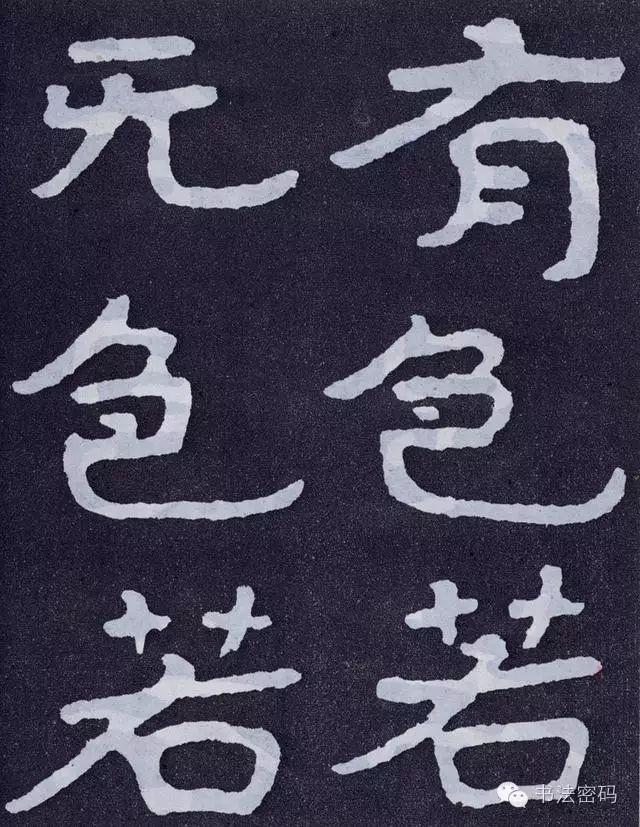 有色若
无色若
书法密码